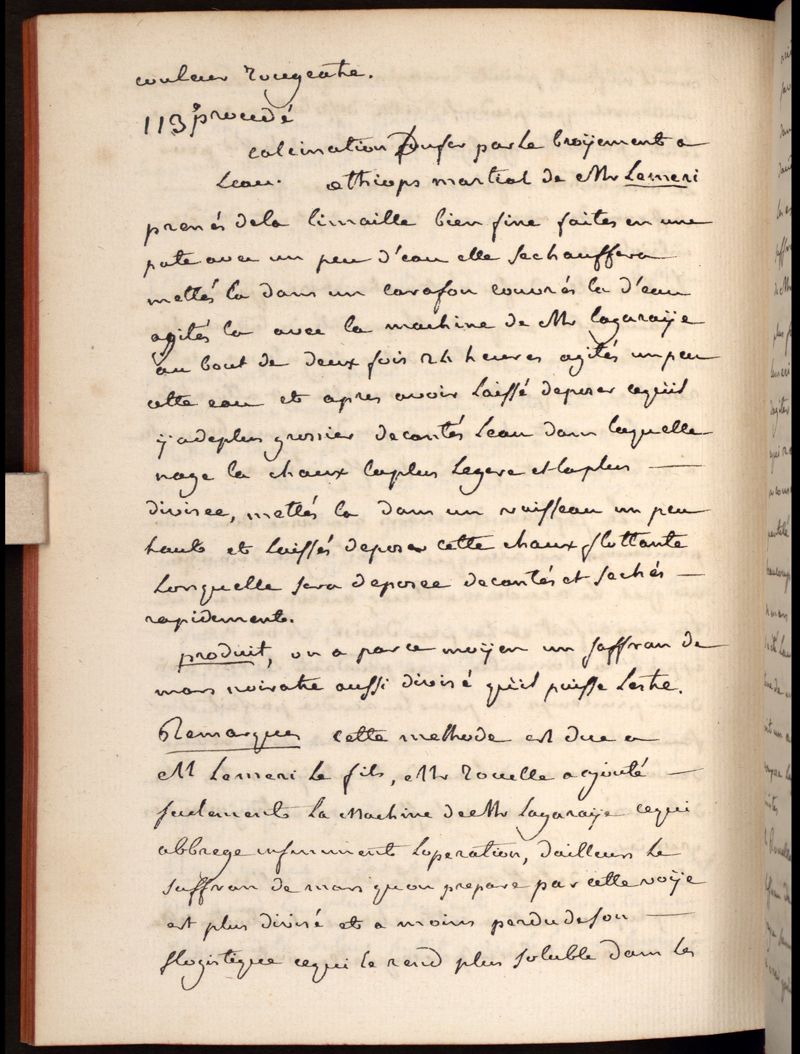 couleur rougeatre.
113e procedé
calcination Dufer par Le broÿement a
Leau. æthiops martial de Mr Lemeri
prenés dela limaille bien fine faites en une
pate avec un peu d'eau elle sechauffera
mettés la dans un carafon couvrés la d'eau
agités la avec la machine de Mr Lagaraÿe
au bout de deux fois 24 heures agités un peu
cette eau et apres avoir laissé deposer cequil
ÿ adeplus grossier decantés Leau dans laquelle
nage la chaux laplus Legere et laplus —
divisee, mettés la dans un vaisseau un peu
haut et laissés deposer cette chaux flottante
Lorsquelle sera deposee decantés et sechés —
rapidement.
produit, on a par ce moÿen un saffran de
mars noiratre aussi divisé qu'il puisse Lestre.
Remarques cette methode est due a
M Lemeri Le fils, Mr Rouelle a ajouté —
seulement La Machine de Mr Lagaraÿe cequi
abbrege infiniment Loperation, dailleurs Le
saffran de mars quon prepare par cette voÿe
est plus divisé et a moins perdu deson —
flogistique cequi le rend plus soluble dans les